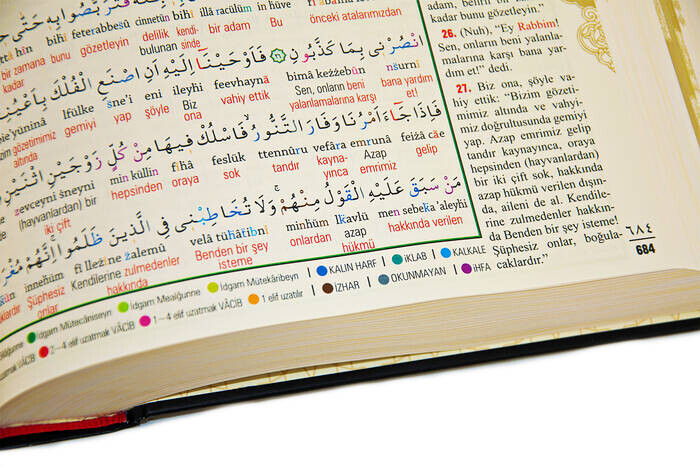 بِهِ حَتّٰى
thî hîn bihî feterabbesû cinnetün bihî illâ racülün in huve
bir zamana bunu gözetleyin delilik kendi bir adam Bu önceki atalarımızdan
kadar bulunan sinde
انْصُرْنٖى بِمَا كَذَّبُونِ ﴿٢٦﴾ فَاَوْحَيْنَٓا اِلَيْهِ اَنِ اصْنَعِ الْفُلْكَ بِاَعْيُنِنَا
lfülke esne'i eni ileyhi feevhaynâ bimâ kezzebûn
gözetimimiz gemiyi yap şöyle Biz vahiy ettik Sen, onların beni bana yardım
altında ona yalanlamalarına karşı et!
فَاِذَا جَٓاءَ اَمْرُنَا وَفَارَ التَّنُّورُ فَاسْلُكْ فٖيهَا مِنْ كُلٍّ زَوْجَيْنِ اثْنَيْنِ
zevceyni min küllin fîhâ feslük ttennûru vefâra emrunâ feizâ câe
(hayvanları) bir hepsinden oraya sok tandır kayna- Azap gelip
iki çift yınca emrimiz
مَنْ سَبَقَ عَلَيْهِ الْقَوْلُ مِنْهُمْ وَلَا تُخَاطِبْنٖى فِى الَّذٖينَ ظَلَمُوا اِنَّهُمْ
innehüm zalemû fî llezîne velâ tühâtibnî minhüm lkavlü men sebeka 'aleyhi
Şüphesiz Kendilerine zulmedenler Benden bir şey onlardan azap hakkında verilen
onlar hakkında isteme hükmü
İdgam Mütecâniseyn İdgam Mealğunne İdgam Mütekâribeyn KALIN HARF İKLAB KALKALE
2-4 elif uzatmak VÂCİB 1-4 elif uzatmak VÂCİB 1 elif uzatılır İZHAR OKUNMAYAN İHFA
adam, belirli bir
kadar bunu gözetleyin."
26. (Nuh), "Ey Rabbim!
Sen, onların beni yalanla-
malarına karşı bana yar-
dım et!" dedi.
27. Biz ona, şöyle va-
hiy ettik: "Bizim gözeti-
mimiz altında ve vahyi-
miz doğrultusunda gemiyi
yap. Azap emrimiz gelip
tandır kaynayınca, oraya
hepsinden (hayvanları)
bir iki çift sok, hakkında
azap hükmü verilen dışın-
da, aileni de al. Kendile-
rine zulmedenler hakkın-
da Benden bir şey isteme!
Şüphesiz onlar, boğula-
caklardır."
٦٨٤
684